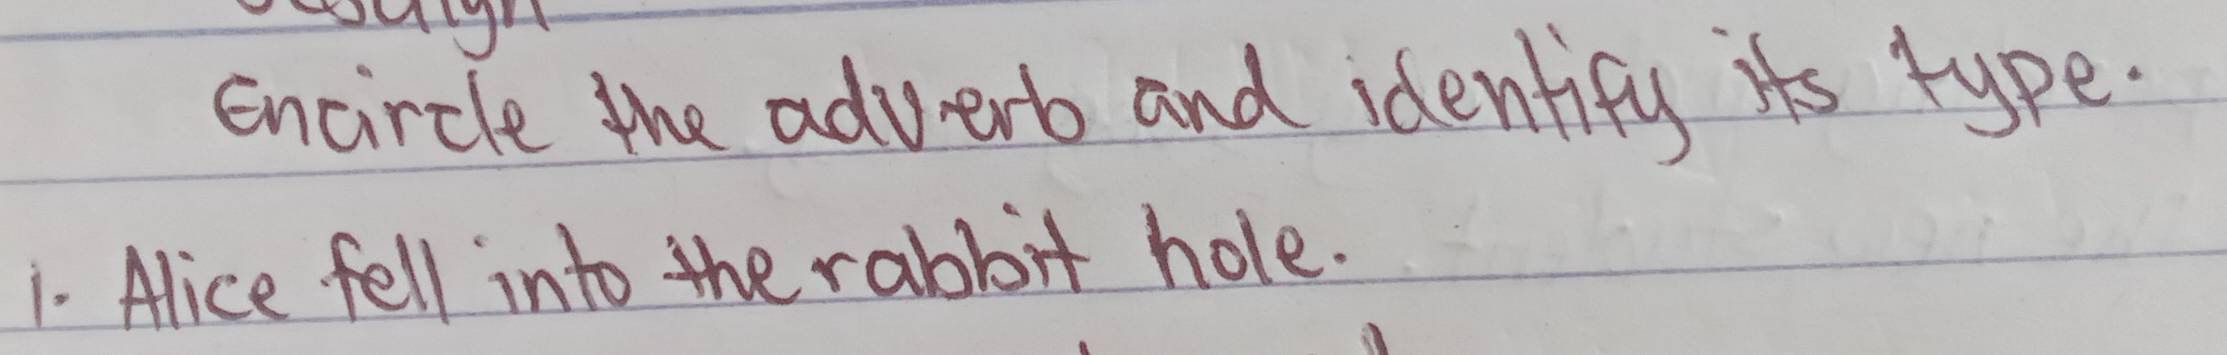 Encircle the adverb and identify its type.
1. Alice fell into the rabbit hole.